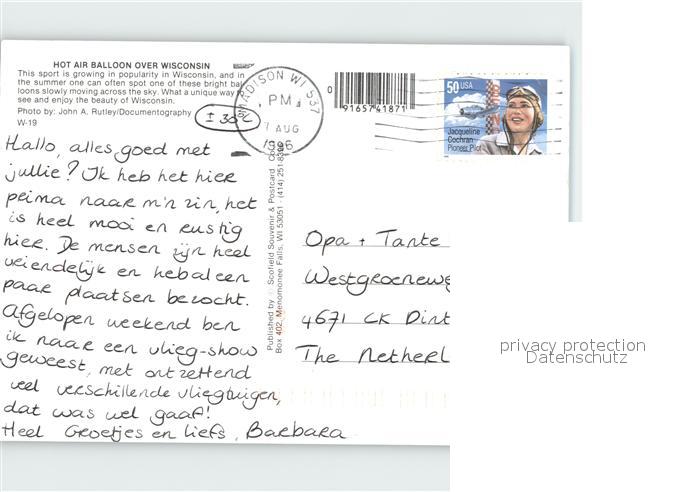 HOT AIR BALLOON OVER WISCONSIN
This sport is growing in popularity in Wisconsin, and in
the summer one can often spot one of these bright bal-
loons slowly moving across the sky. What a unique way
see and enjoy the beauty of Wisconsin.
Photo by: John A. Rutley/Documentography
W-19
± 30
MADISON WI 537
PM
7 AUG
1996
0
9165741871
50 USA
Jacqueline
Cochran
Pioneer Pilot
Hallo, alles goed met
jullie? Ik heb het hier
prima naar m'n zin, het
is heel mooi en rustig
hier. De mensen zijn heel
vriendelijk en heb al een
paar plaatsen bezocht.
Afgelopen weekend ben
ik naar een vlieg-show
geweest, met ontzettend
veel verschillende vliegtuigen,
dat was wel gaaf!
Heel Groetjes en liefs, Barbara
Published by Scofield Souvenir & Postcard Co.
Box 402, Menomonee Falls, WI 53051
Opa + Tante
Westgroeneweg
4671 CK Dint
The Netherl
privacy protection
Datenschutz